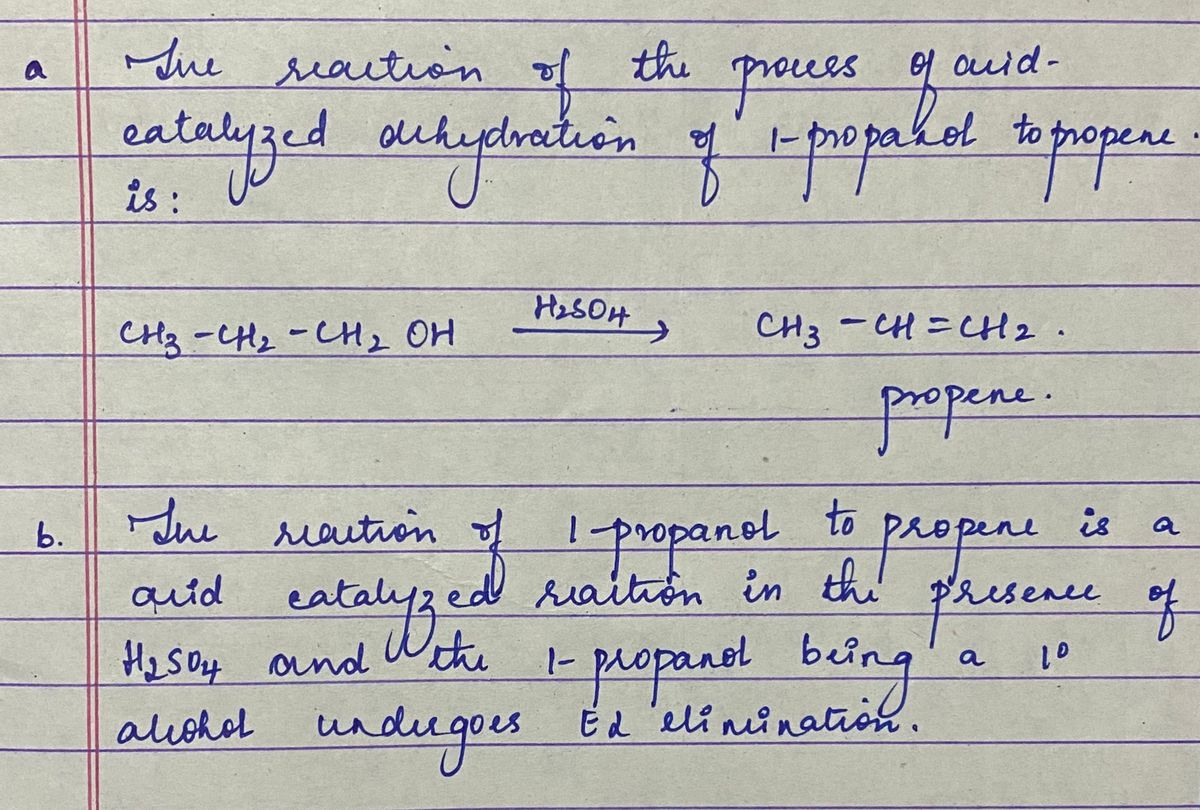 a The reaction of the process of acid-
catalyzed dehydration of 1-propanol to propene.
is:
CH3-CH2-CH2OH H2SO4 → CH3-CH=CH2.
propene.
b. The reaction of 1-propanol to propene is a
acid catalyzed reaction in the presence of
H2SO4 and the 1-propanol being a 1°
alcohol undergoes E2 elimination.